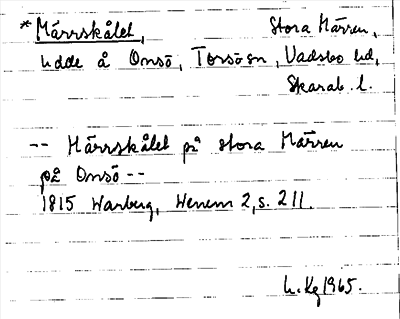 *Märrskålet, Stora Märren,
udde å Onsö, Torsö sn, Vadsbo hd,
Skarab. l.
-- Märrskålet på stora Märren
på Onsö --
1815 Warberg, Wenern 2, s. 211.
L. Kg 1965.